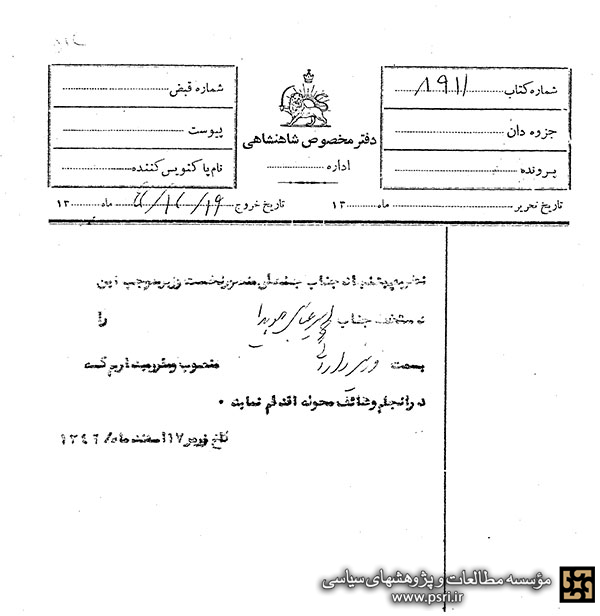 شماره کتاب ۸۹۱۱
جزوه دان
پرونده
دفتر مخصوص شاهنشاهی
اداره
شماره قبض
پیوست
نام پاکنویس کننده
تاریخ تحریر ماه ۱۳
تاریخ خروج ماه ۱۳
نظر به پیشنهاد جناب حسنعلی منصور نخست وزیر بموجب این
دستخط جناب امیر عباس هویدا را
بسمت وزیر دارائی منصوب و مقرر میداریم که
در انجام وظائف محوله اقدام نماید .
تاریخ ۱۷ اسفند ماه ۱۳۴۲
مؤسسه مطالعات و پژوهشهای سیاسی
www.psri.ir